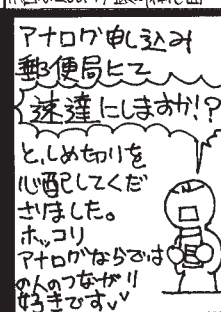 アナログ申し込み
郵便局にて
速達にしますか!?
と、しめ切りを
心配してくだ
さりました。
ホッコリ
アナログならでは
の人のつながり
好きです♡